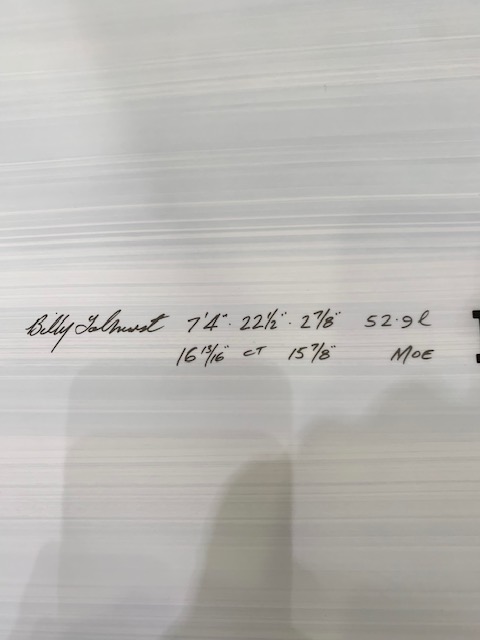 Billy Tolhurst 7'4" · 22½" · 2⅞" 52.9l
16 13/16" CT 15⅞" MOE